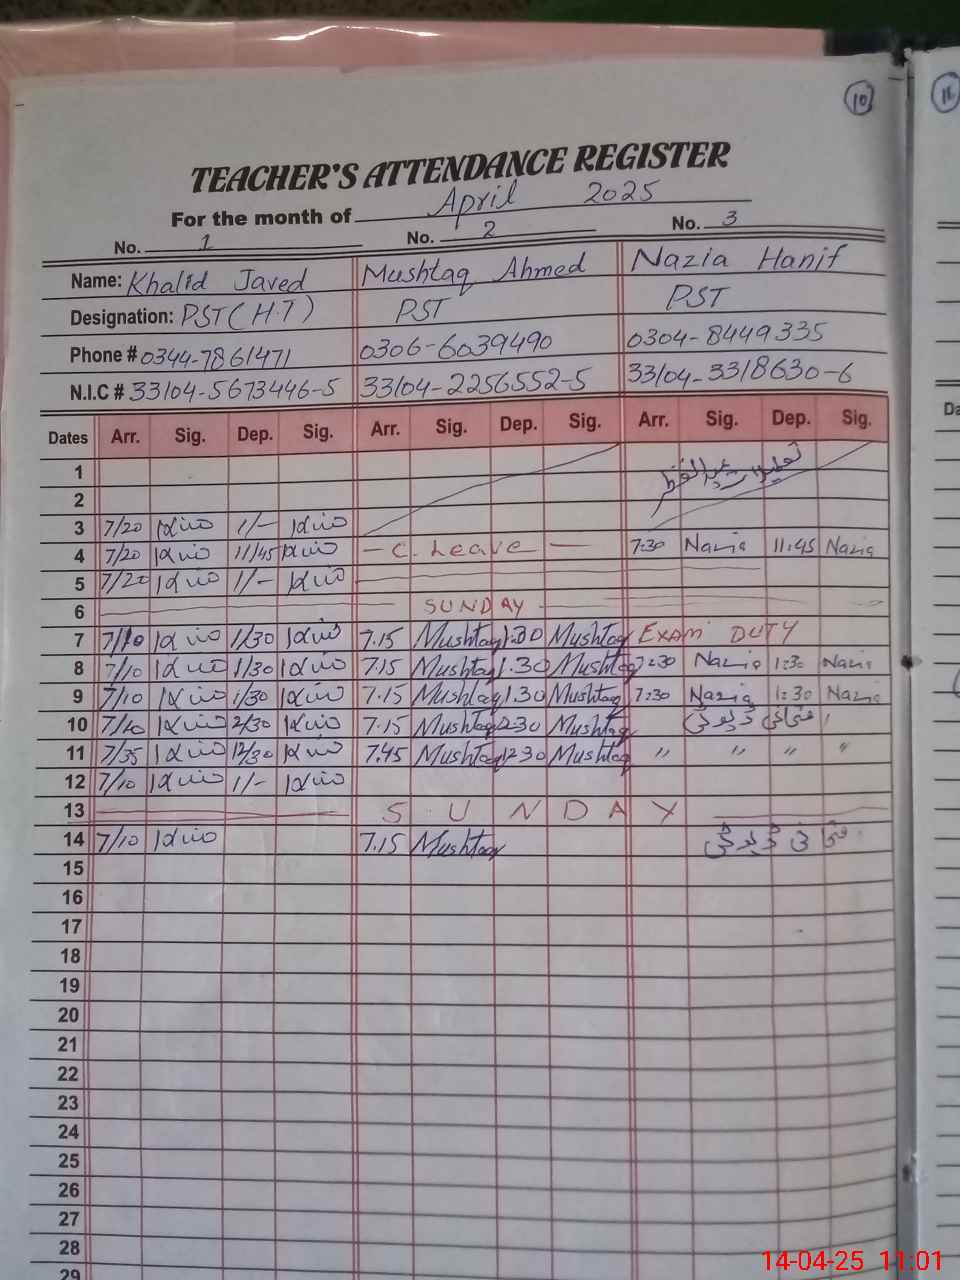 10
11
TEACHER'S ATTENDANCE REGISTER
For the month of April 2025
No. 1 No. 2 No. 3
Name: Khalid Javed Mushtaq Ahmed Nazia Hanif
Designation: PST (H.T) PST PST
Phone # 0344-7861471 0306-6039490 0304-8449335
N.I.C # 33104-5673446-5 33104-2256552-5 33104-3318630-6
Dates Arr. Sig. Dep. Sig. Arr. Sig. Dep. Sig. Arr. Sig. Dep. Sig.
1 تعطیلات عید الفطر
2
3 7/20 1/-
4 7/20 11/45 - C. Leave - 7:30 Nazia 11:45 Nazia
5 7/20 1/-
6 SUNDAY
7 7/10 1/30 7.15 Mushtaq 1.30 Mushtaq EXAM DUTY
8 7/10 1/30 7.15 Mushtaq 1.30 Mushtaq 7:30 Nazia 1:30 Nazia
9 7/10 1/30 7.15 Mushtaq 1.30 Mushtaq 7:30 Nazia 1:30 Nazia
10 7/10 2/30 7.15 Mushtaq 2.30 Mushtaq ڈیوٹی
11 7/35 12/30 7.45 Mushtaq 12.30 Mushtaq " " " "
12 7/10 1/-
13 SUNDAY
14 7/10 7.15 Mushtaq ڈیوٹی
15
16
17
18
19
20
21
22
23
24
25
26
27
28
29
14-04-25 11:01